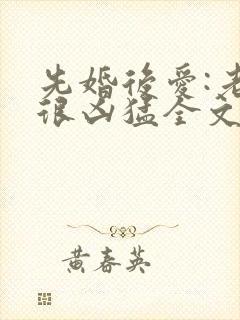 先婚後愛:老
很凶猛全文
黄春英